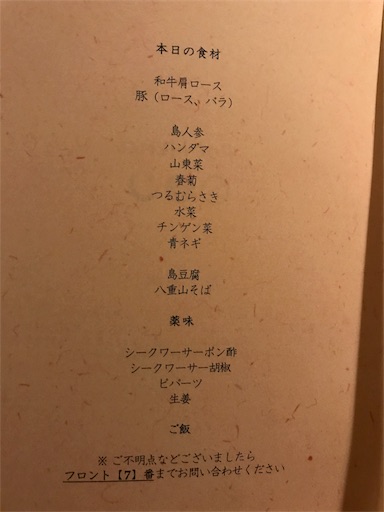 本日の食材
和牛肩ロース
豚（ロース、バラ）
島人参
ハンダマ
山東菜
春菊
つるむらさき
水菜
チンゲン菜
青ネギ
島豆腐
八重山そば
薬味
シークワーサーポン酢
シークワーサー胡椒
ピパーツ
生姜
ご飯
※ ご不明点などございましたら
フロント【7】番までお問い合わせください